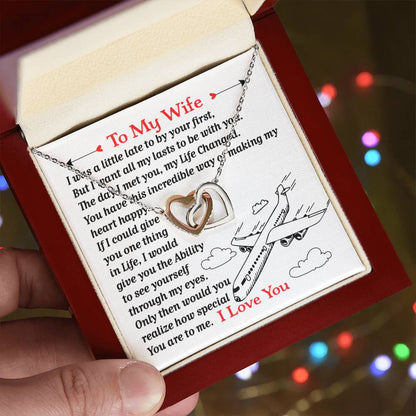 To My Wife
I was a little late to by your first,
But I want all my lasts to be with you.
The day I met you, my life Changed.
You have this incredible way of making my
heart happy.
If I could give
you one thing
in Life, I would
give you the Ability
to see yourself
through my eyes.
Only then would you
realize how special
You are to me. I Love You